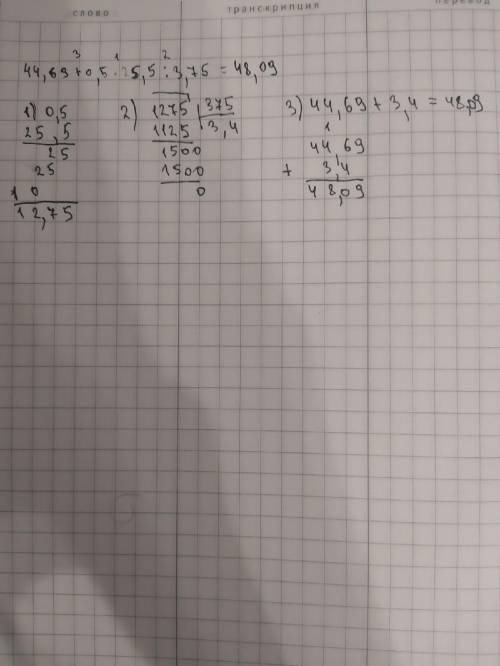 слово транскрипция перевод
3 1 2
44,69 + 0,5 · 25,5 : 3,75 = 48,09
1) 0,5
25,5
25
25
10
12,75
2) 1275 375
1125 3,4
1500
1500
0
3) 44,69 + 3,4 = 48,09
1
44 69
+ 3,4
48,09